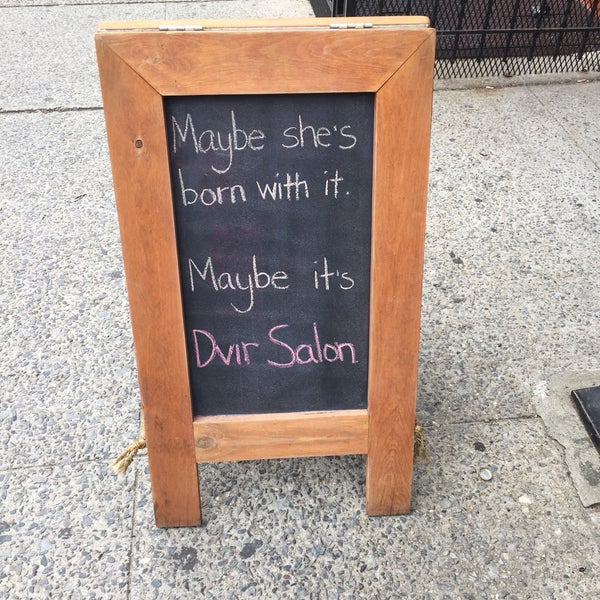 Maybe she's
born with it.
Maybe it's
Dvir Salon